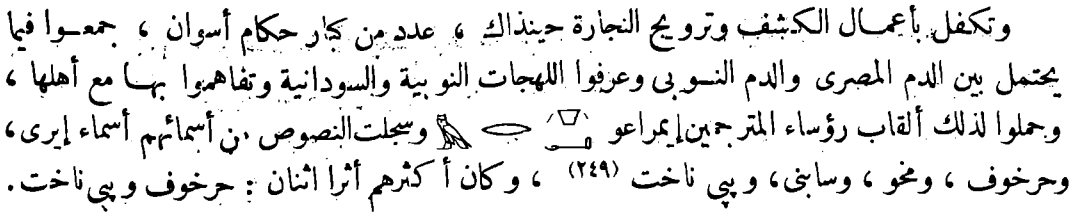 وتكفل بأعمال الكشف وترويج التجارة حينذاك ، عدد من كبار حكام أسوان ، جمعوا فيما
يحتمل بين الدم المصرى والدم النوبى وعرفوا اللهجات النوبية والسودانية وتفاهموا بها مع أهلها ،
وحملوا لذلك ألقاب رؤساء المترجمين إيمراعو وسجلت النصوص من أسمائهم أسماء إيرى ،
وحرخوف ، ومخو ، وسابنى ، وبيى ناخت (٢٤٩) ، وكان أكثرهم أثرا اثنان : حرخوف وبيى ناخت .